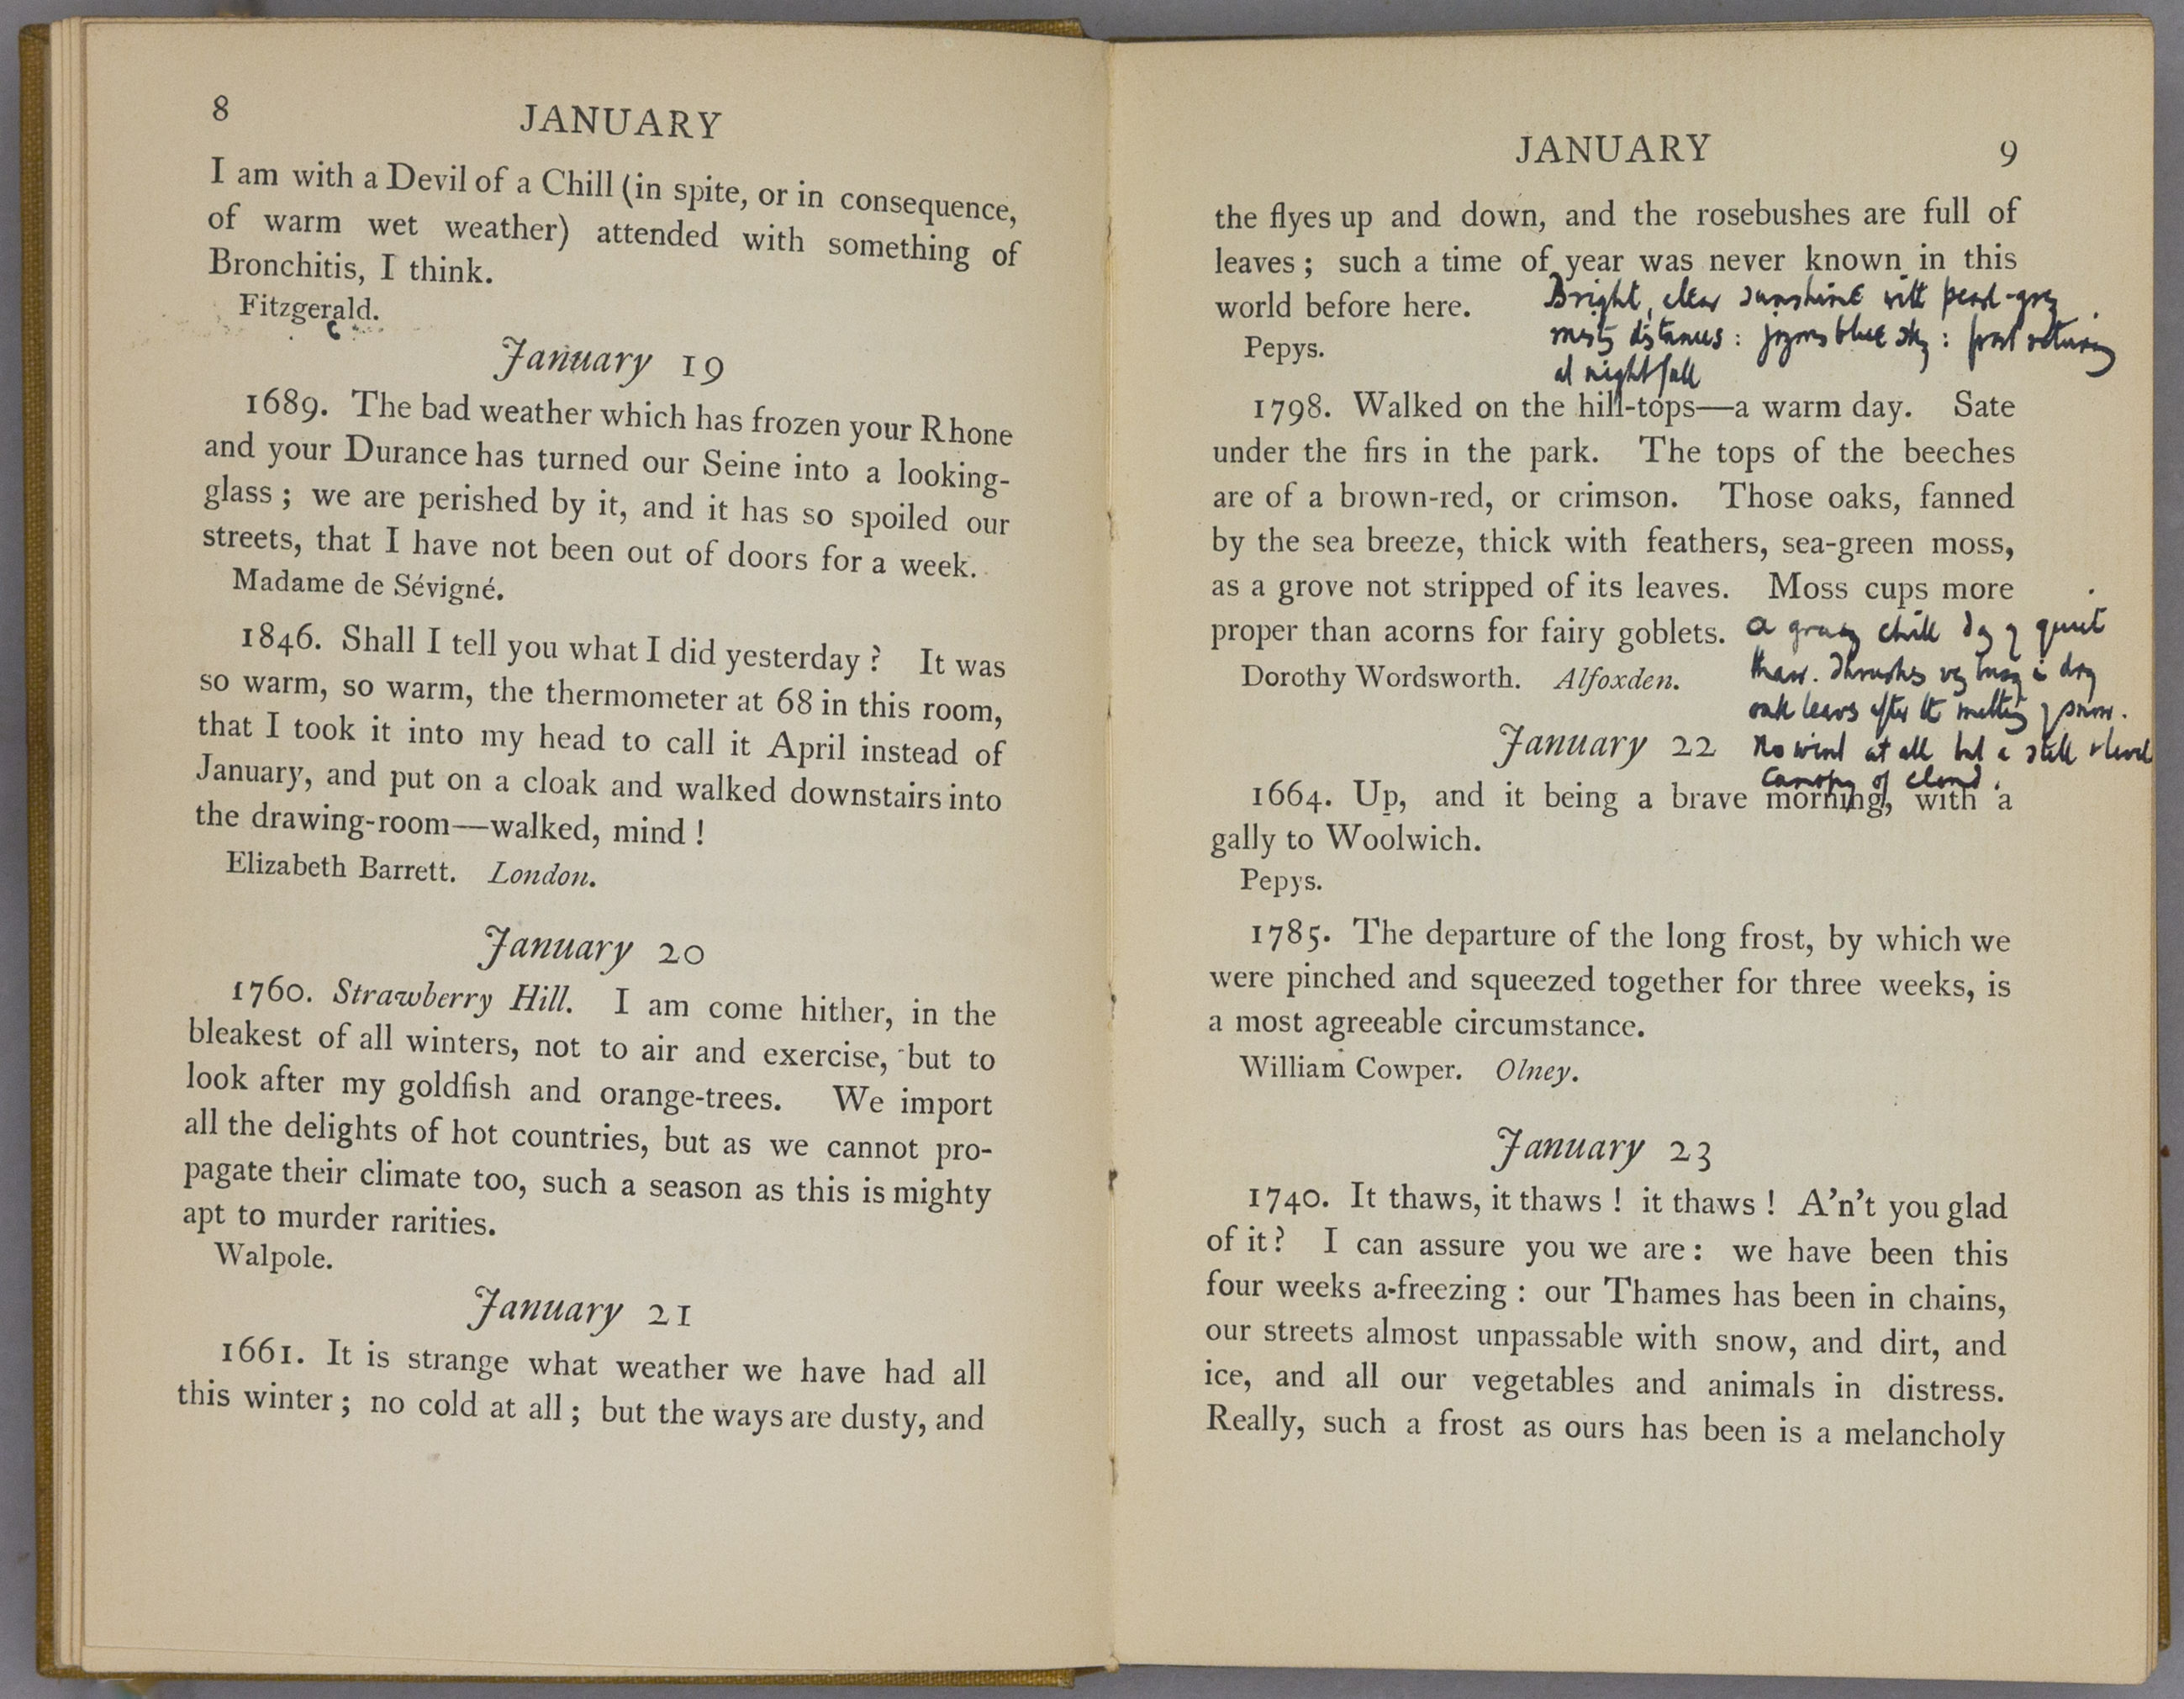 8
JANUARY
I am with a Devil of a Chill (in spite, or in consequence,
of warm wet weather) attended with something of
Bronchitis, I think.
Fitzgerald.
January 19
1689. The bad weather which has frozen your Rhone
and your Durance has turned our Seine into a looking-
glass ; we are perished by it, and it has so spoiled our
streets, that I have not been out of doors for a week.
Madame de Sévigné.
1846. Shall I tell you what I did yesterday ? It was
so warm, so warm, the thermometer at 68 in this room,
that I took it into my head to call it April instead of
January, and put on a cloak and walked downstairs into
the drawing-room—walked, mind !
Elizabeth Barrett. London.
January 20
1760. Strawberry Hill. I am come hither, in the
bleakest of all winters, not to air and exercise, but to
look after my goldfish and orange-trees. We import
all the delights of hot countries, but as we cannot pro-
pagate their climate too, such a season as this is mighty
apt to murder rarities.
Walpole.
January 21
1661. It is strange what weather we have had all
this winter ; no cold at all ; but the ways are dusty, and
JANUARY
9
the flyes up and down, and the rosebushes are full of
leaves ; such a time of year was never known in this
world before here.
Pepys.
Bright, clear sunshine with pearl-grey
misty distances : blue sky : frost returning
at nightfall
1798. Walked on the hill-tops—a warm day. Sate
under the firs in the park. The tops of the beeches
are of a brown-red, or crimson. Those oaks, fanned
by the sea breeze, thick with feathers, sea-green moss,
as a grove not stripped of its leaves. Moss cups more
proper than acorns for fairy goblets.
Dorothy Wordsworth. Alfoxden.
A gray chill day of quiet
thaw. Thrushes very busy in dry
oak leaves after the melting of snow.
No wind at all but a still & level
canopy of cloud.
January 22
1664. Up, and it being a brave morning, with a
gally to Woolwich.
Pepys.
1785. The departure of the long frost, by which we
were pinched and squeezed together for three weeks, is
a most agreeable circumstance.
William Cowper. Olney.
January 23
1740. It thaws, it thaws ! it thaws ! A'n't you glad
of it ? I can assure you we are : we have been this
four weeks a-freezing : our Thames has been in chains,
our streets almost unpassable with snow, and dirt, and
ice, and all our vegetables and animals in distress.
Really, such a frost as ours has been is a melancholy